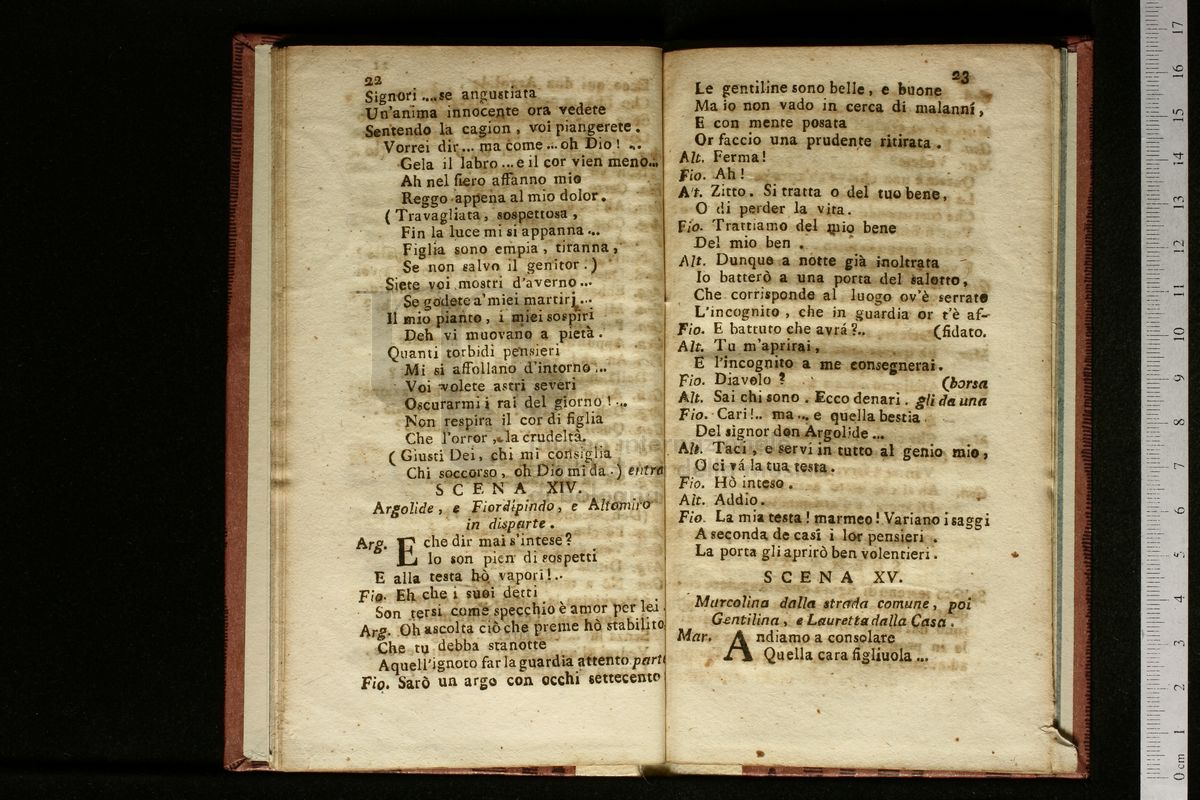 22
Signori ....se angustiata
Un'anima innocente ora vedete
Sentendo la cagion , voi piangerete .
Vorrei dir ... ma come ... oh Dio ! ...
Gela il labro ... e il cor vien meno...
Ah nel fiero affanno mio
Reggo appena al mio dolor .
( Travagliata , sospettosa ,
Fin la luce mi si appanna ...
Figlia sono empia , tiranna ,
Se non salvo il genitor . )
Siete voi mostri d'averno ...
Se godete a' miei martirj ...
Il mio pianto , i miei sospiri
Deh vi muovano a pietà .
Quanti torbidi pensieri
Mi si affollano d'intorno ...
Voi volete astri severi
Oscurarmi i rai del giorno ! ...
Non respira il cor di figlia
Che l'orror , la crudeltà.
( Giusti Dei , chi mi consiglia
Chi soccorso , oh Dio mi da . ) entra
SCENA XIV.
Argolide , e Fiordipindo , e Altomiro
in disparte .
Arg. E che dir mai s'intese ?
Io son pien di sospetti
E alla testa hò vapori !..
Fio. Eh che i suoi detti
Son tersi come specchio è amor per lei .
Arg. Oh ascolta ciò che preme hò stabilito
Che tu debba stanotte
Aquell'ignoto far la guardia attento parte
Fio. Sarò un argo con occhi settecento
23
Le gentiline sono belle , e buone
Ma io non vado in cerca di malanní ,
E con mente posata
Or faccio una prudente ritirata .
Alt. Ferma !
Fio. Ah !
At. Zitto . Si tratta o del tuo bene ,
O di perder la vita .
Fio. Trattiamo del mio bene
Del mio ben .
Alt. Dunque a notte già inoltrata
Io batterò a una porta del salotto ,
Che corrisponde al luogo ov'è serrato
L'incognito , che in guardia or t'è af-
Fio. E battuto che avrá ?.. (fidato.
Alt. Tu m'aprirai ,
E l'incognito a me consegnerai .
Fio. Diavolo ? (borsa
Alt. Sai chi sono . Ecco denari . gli da una
Fio. Cari !.. ma ... e quella bestia
Del signor don Argolide ...
Alt. Taci , e servi in tutto al genio mio ,
O ci vá la tua testa .
Fio. Hò inteso .
Alt. Addio .
Fio. La mia testa ! marmeo ! Variano i saggi
A seconda de casi i lor pensieri .
La porta gli aprirò ben volentieri .
SCENA XV.
Marcolina dalla strada comune , poi
Gentilina , e Lauretta dalla Casa .
Mar. Andiamo a consolare
Quella cara figliuola ...
0 cm 1 2 3 4 5 6 7 8 9 10 11 12 13 14 15 16 17